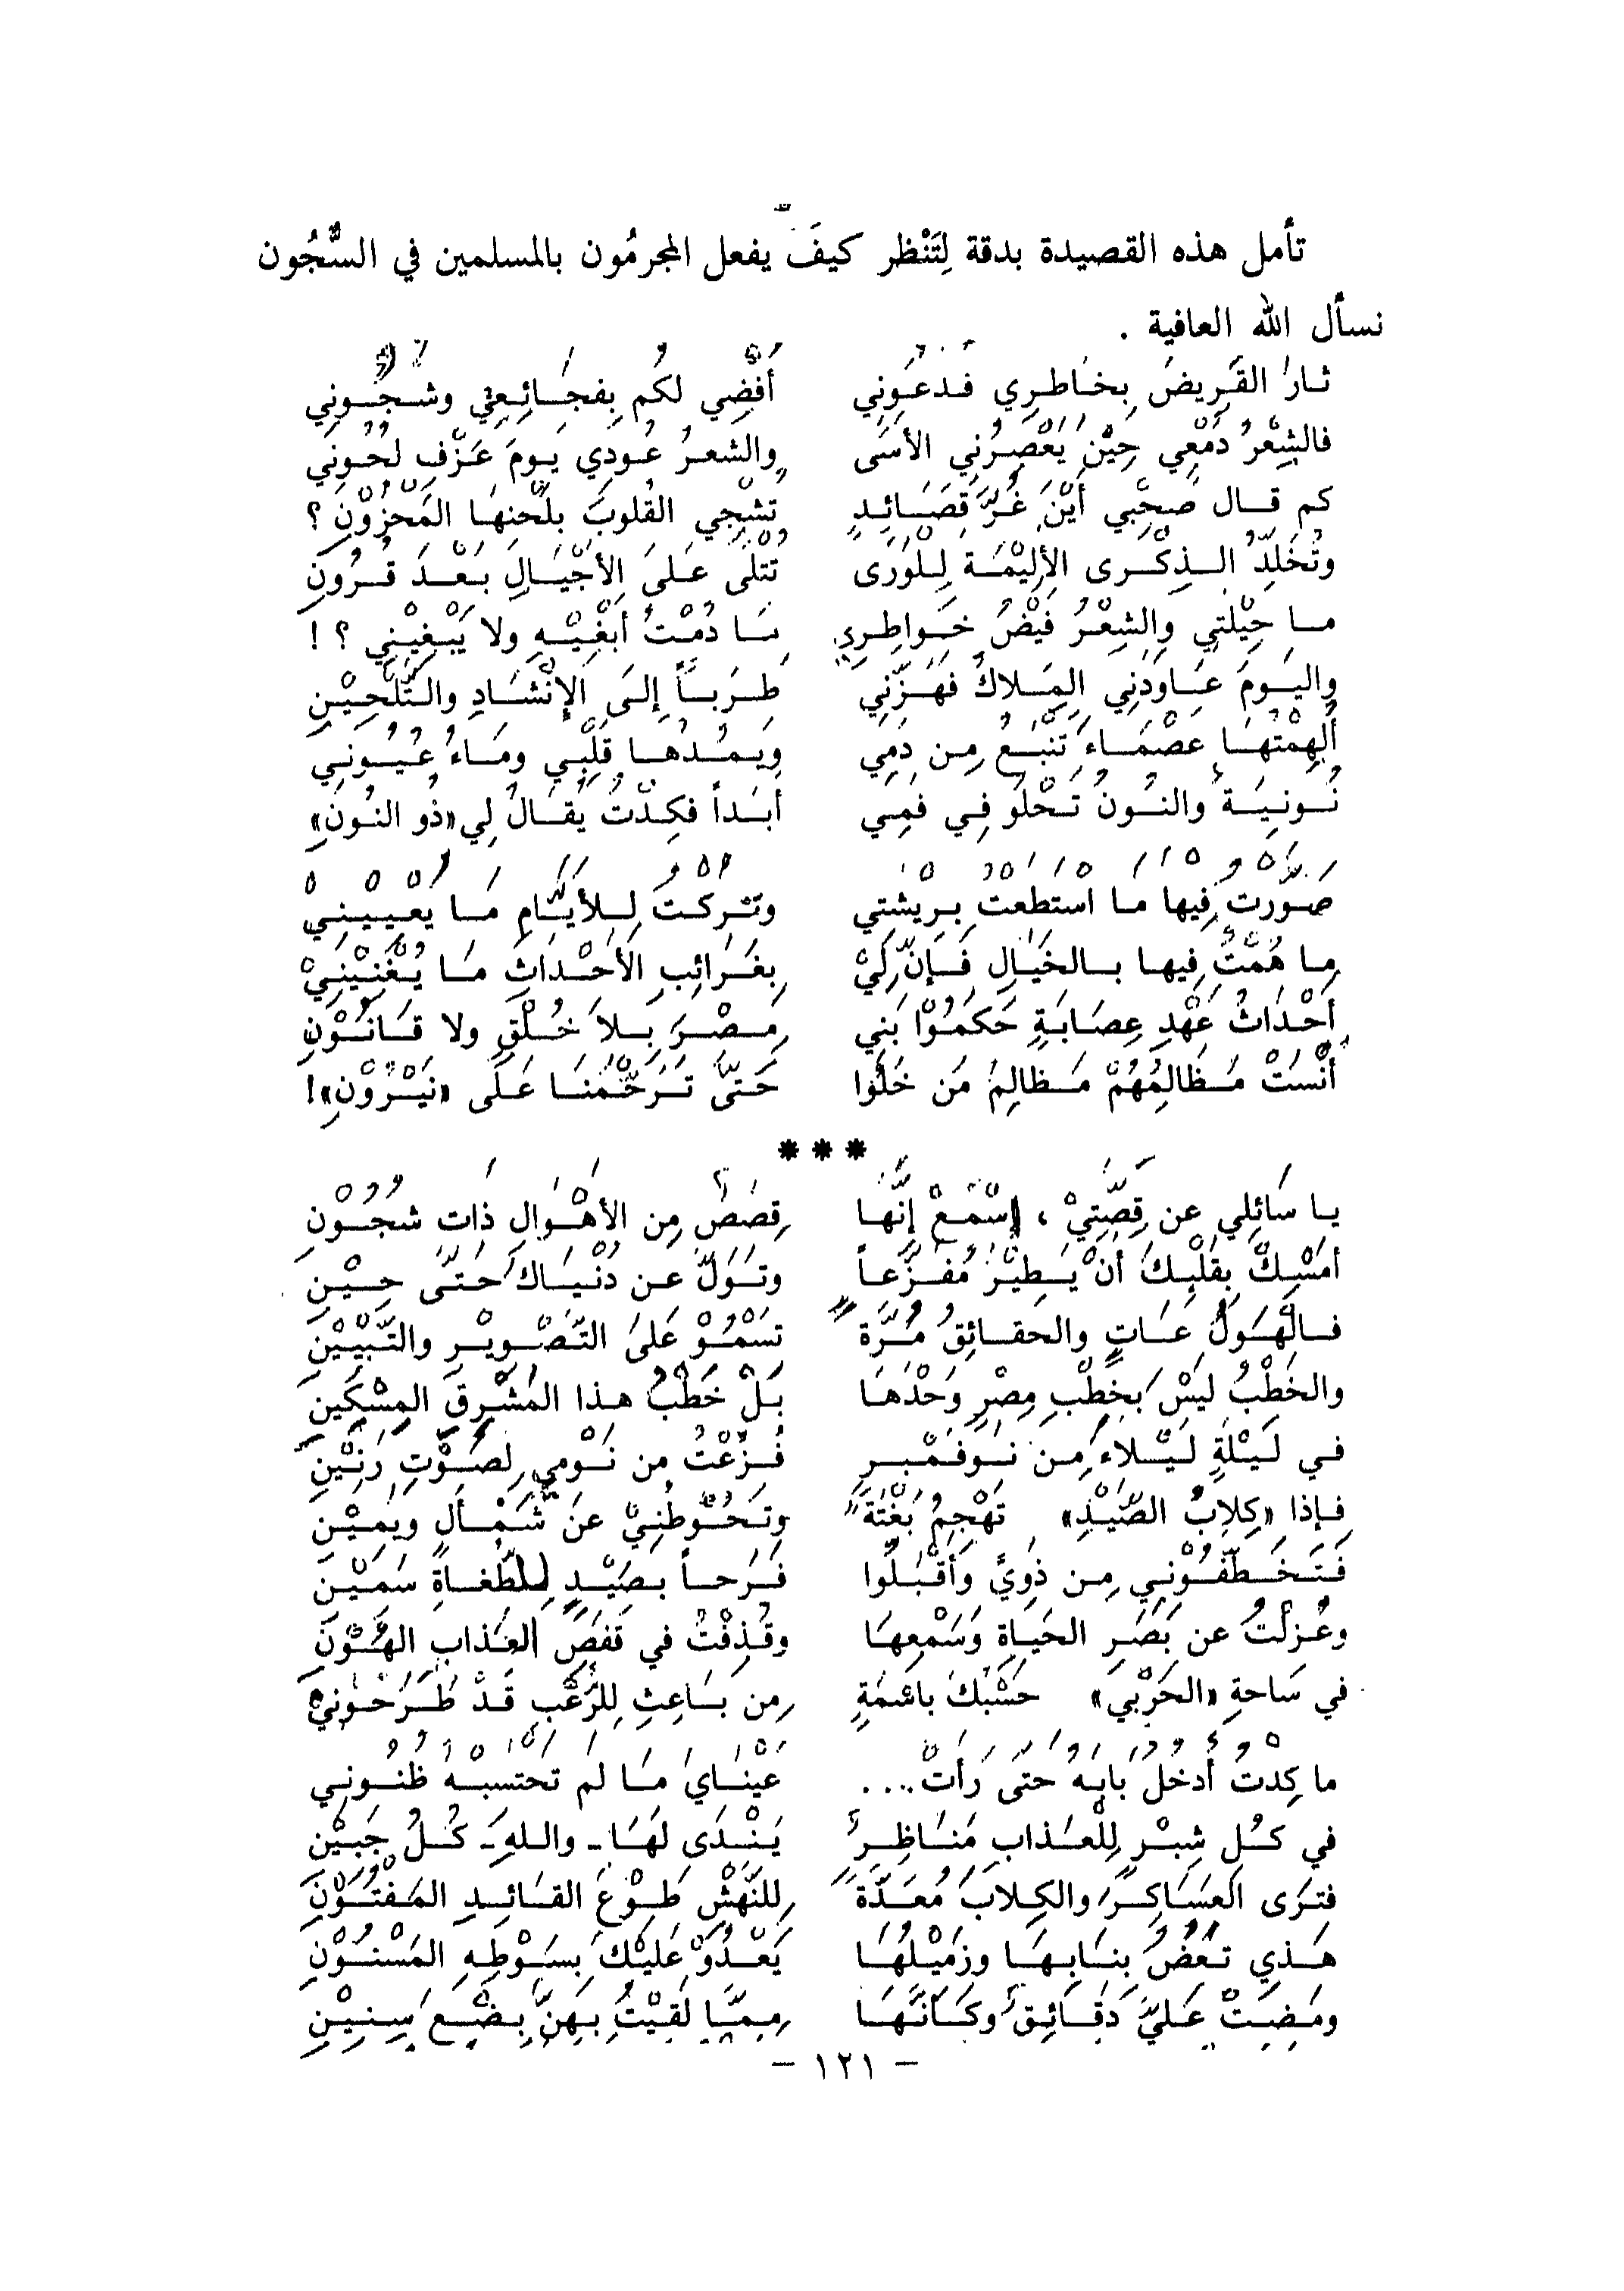 تأمل هذه القصيدة بدقة لِتَنْظر كيفَ يفعل المجرمُون بالمسلمين في السُّجُون
نسأل الله العافية .
ثـارُ القَرِيضُ بِخـاطـرِي فـدعـوني أُفْضِي لكُم بِفجـائِـعِي وشـجُـوني
فالشِعْرُ دَمْعِي حِيْنَ يَعْصِرُني الأسَى والشعـرُ عُـودِي يـومَ عَـزْفِ لُحُـوني
كم قـال صَحْبِي أيْنَ غُـرُّ قصَـائِـدٍ تشْجِي القُلوبَ بلَحْنِهَا المَحْزُوْنِ ؟
وتُخَلِّدُ الـذِكْـرى الأَلِيْمَـة لِلْوَرَى تُتْلَى عَـلَى الأَجْيَـالِ بَعْـدَ قُـرُونِ
مـا حِيْلتي والشِعْـرُ فَيْضُ خـواطـري مَـا دُمْـتُ أبْغِيْـهِ ولا يَبْغِيْنِي ؟ !
واليـومَ عَـاوَدَنِي المَـلاكُ فَهَـزَّني طَـرَبـاً إلَى الإِنْشَـادِ والتَّلْحِيْنِ
أُلهِمْتُهـا عَصْمَـاءَ تَنْبَـعُ مِـن دَمِي وَيَمُـدُهـا قَلْبِي ومَـاءُ عُيُـوني
نُـونيَـة والنُـونُ تَحْلُو فِي فَمِي أبَـداً فكِـدْتُ يُقـالُ لِي «ذُو النُونِ»
صـوَرْت فِيها مـا استَطَعْت بـرِيشَتي وتَـركـتُ لِلأيَّـامِ مَـا يعـييـنِيْ
مـا هُمْتُ فيهـا بـالخَيَـالِ فَـإنَّ لِيْ بغَـرَائِبِ الأَحْـدَاثِ مَـا يُغْنِيْنِيْ
أحْـدَاثُ عَهْدِ عِصَـابَـةٍ حَكَمُوْا بَنِي مِـصْـرَ بِـلاَ خُلْقٍ ولا قَـانُـوْنِ
أنْسَتْ مَـظَالِمُهُمْ مَـظالِمُ مَن خَلَوْا حَتَّى تَـرَحَّمْنَـا عَـلَى «نَيْرُوْنِ»!
***
يـا سَائِلِي عن قِصَّتِيْ ، إسْمَـعْ إنَّهـا قِصَصٌ مِن الأَهْـوَالِ ذَات شُجُـوْن
أَمْسِـكْ بِقَلْبِـكَ أنْ يَـطِيْرَ مُفَـزَّعـاً وتَـوَلَّ عـن دُنْيَـاكَ حَتَّى حِـيْنِ
فـالهَـوْلُ عَـاتٍ والحقـائِقُ مُـرَّة تَسْمُـوْ عَلَى التَّصْـوِيْـرِ والتَّبْيِيْنِ
والخَطْبُ ليسَ بخطْبِ مِصْرٍ وَحْدَهَا بَـلْ خَطْبُ هـذا المَشْرِقِ المِسْكِينِ
في لَيْلَةٍ لَيْـلاءَ مِـنْ نـوفـمْبِـرِ فُـزِّعْتُ مِن نَـوْمي لِصَـوْتِ رَنِيْنِ
فـإذا «كِلاَبُ الصَّيْدِ» تَهْجِمُ بَغْتَةً وتَحُـوْطُنِيْ عَنْ شَمْـأَلٍ ويَمِيْـنِ
فَتَخَـطَّفُوْنِي مِـن ذَوِيَّ وَأقْبَلُوا فَـرَحـاً بِصَيْـدٍ للطُّغـاةِ سَمِيْـنِ
وعُـزِلْتُ عن بَصَرِ الحَيـاةِ وَسَمْعِهـا وقُـذِفْتُ في قَفَصِ العَـذاب الهُـوْنِ
في سَاحةِ «الحَرْبيِ» حَسْبُكَ باسْمَهِ مِن بَـاعِثٍ للرُعْبِ قَدْ طَرَحُـونيْ
ما كِدْتُ أدخلُ بابَهُ حتى رَأتْ.... عَيْنَـايَ مَـا لم تحتسبـهُ ظُنُـوني
في كـل شِبْـرٍ لِلْعَـذابِ مَنَـاظِـرٌ يَنْـدَى لَهَـا ـ واللهِ ـ كُـلُ جَبِيْنِ
فتـرَى العَسَـاكِـرَ والكِـلابَ مُعَـدَّةً للنَّهْشِ طَـوْعَ القَـائِـدِ المَفْتُـوْنِ
هَـذِي تَعُضُ بِنـابِهَـا وزَمِيْلُهَـا يَعْـدُوْ عَليْكَ بِسَـوْطِـهِ المَسْنُـوْنِ
ومَـضَتْ عَـلَيَّ دَقَـائِقٌ وكَـأنَّهَـا مِمَّـا لَقِيْتُ بِهِنَّ بِـضْـعَ سِنِيْنِ
– ١٢١ –